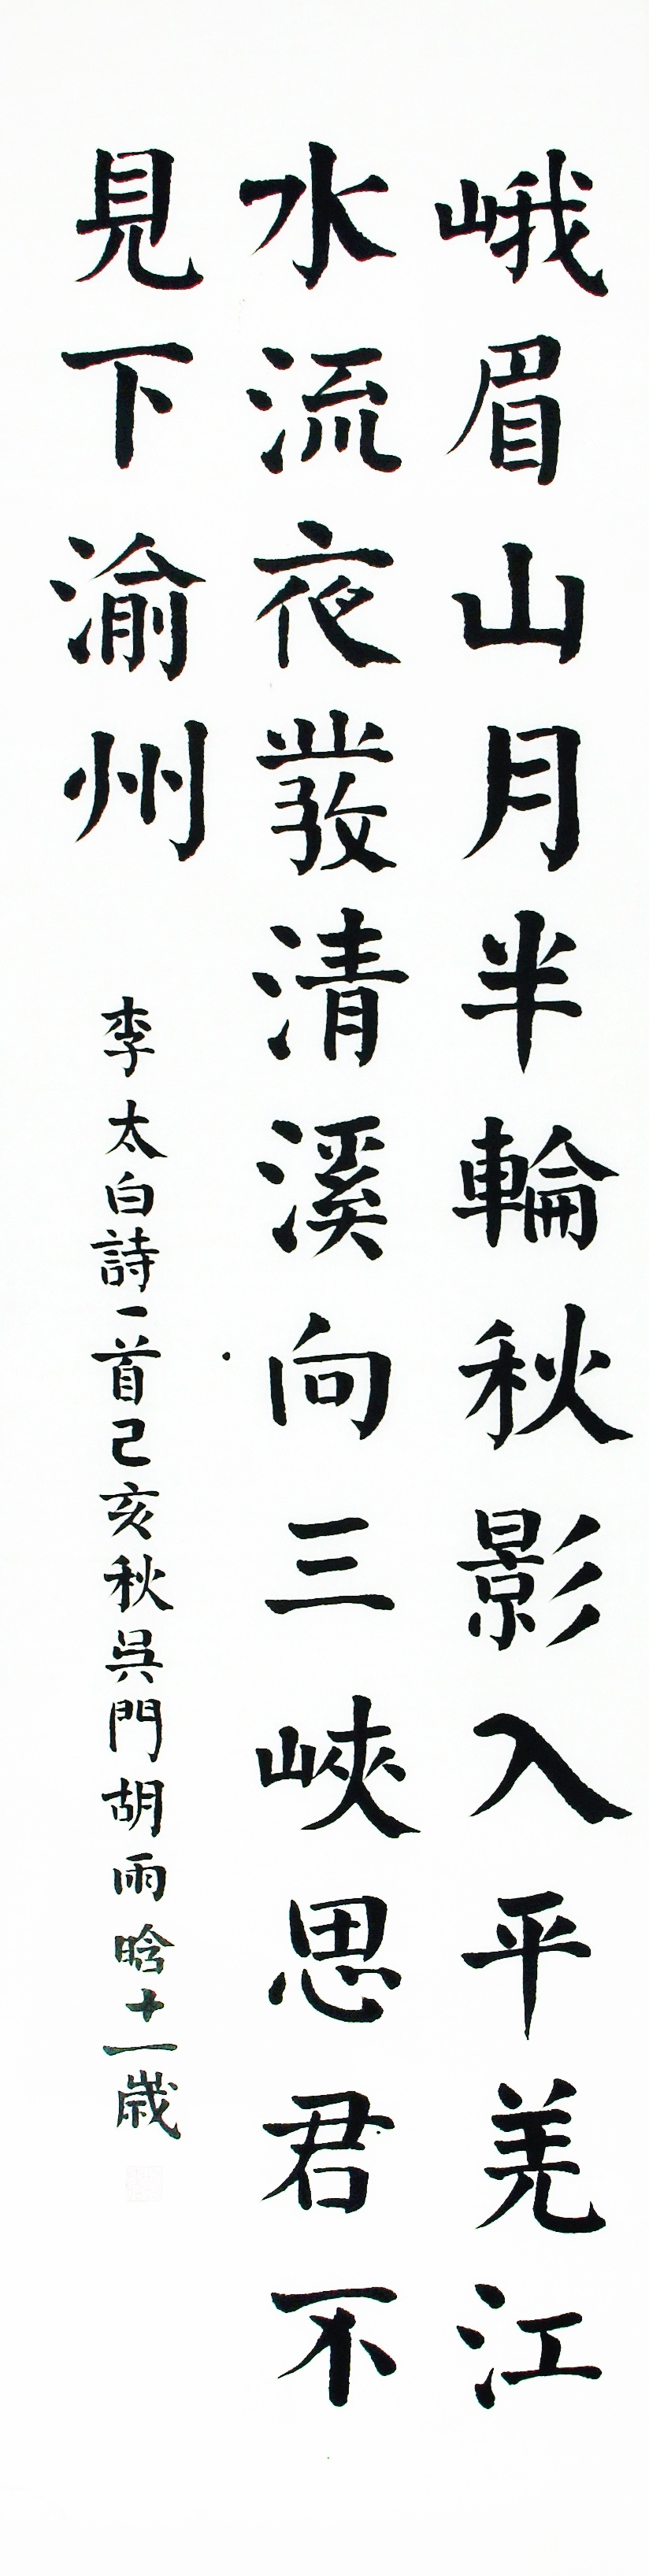 峨眉山月半輪秋影入平羌江
水流夜發清溪向三峽思君不
見下渝州
李太白詩一首己亥秋吳門胡雨晗十一歲